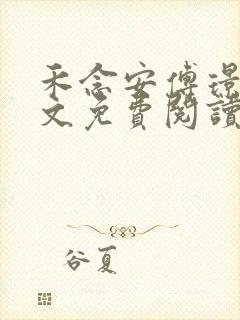 禾念安傅璟
文免費閱讀
谷夏